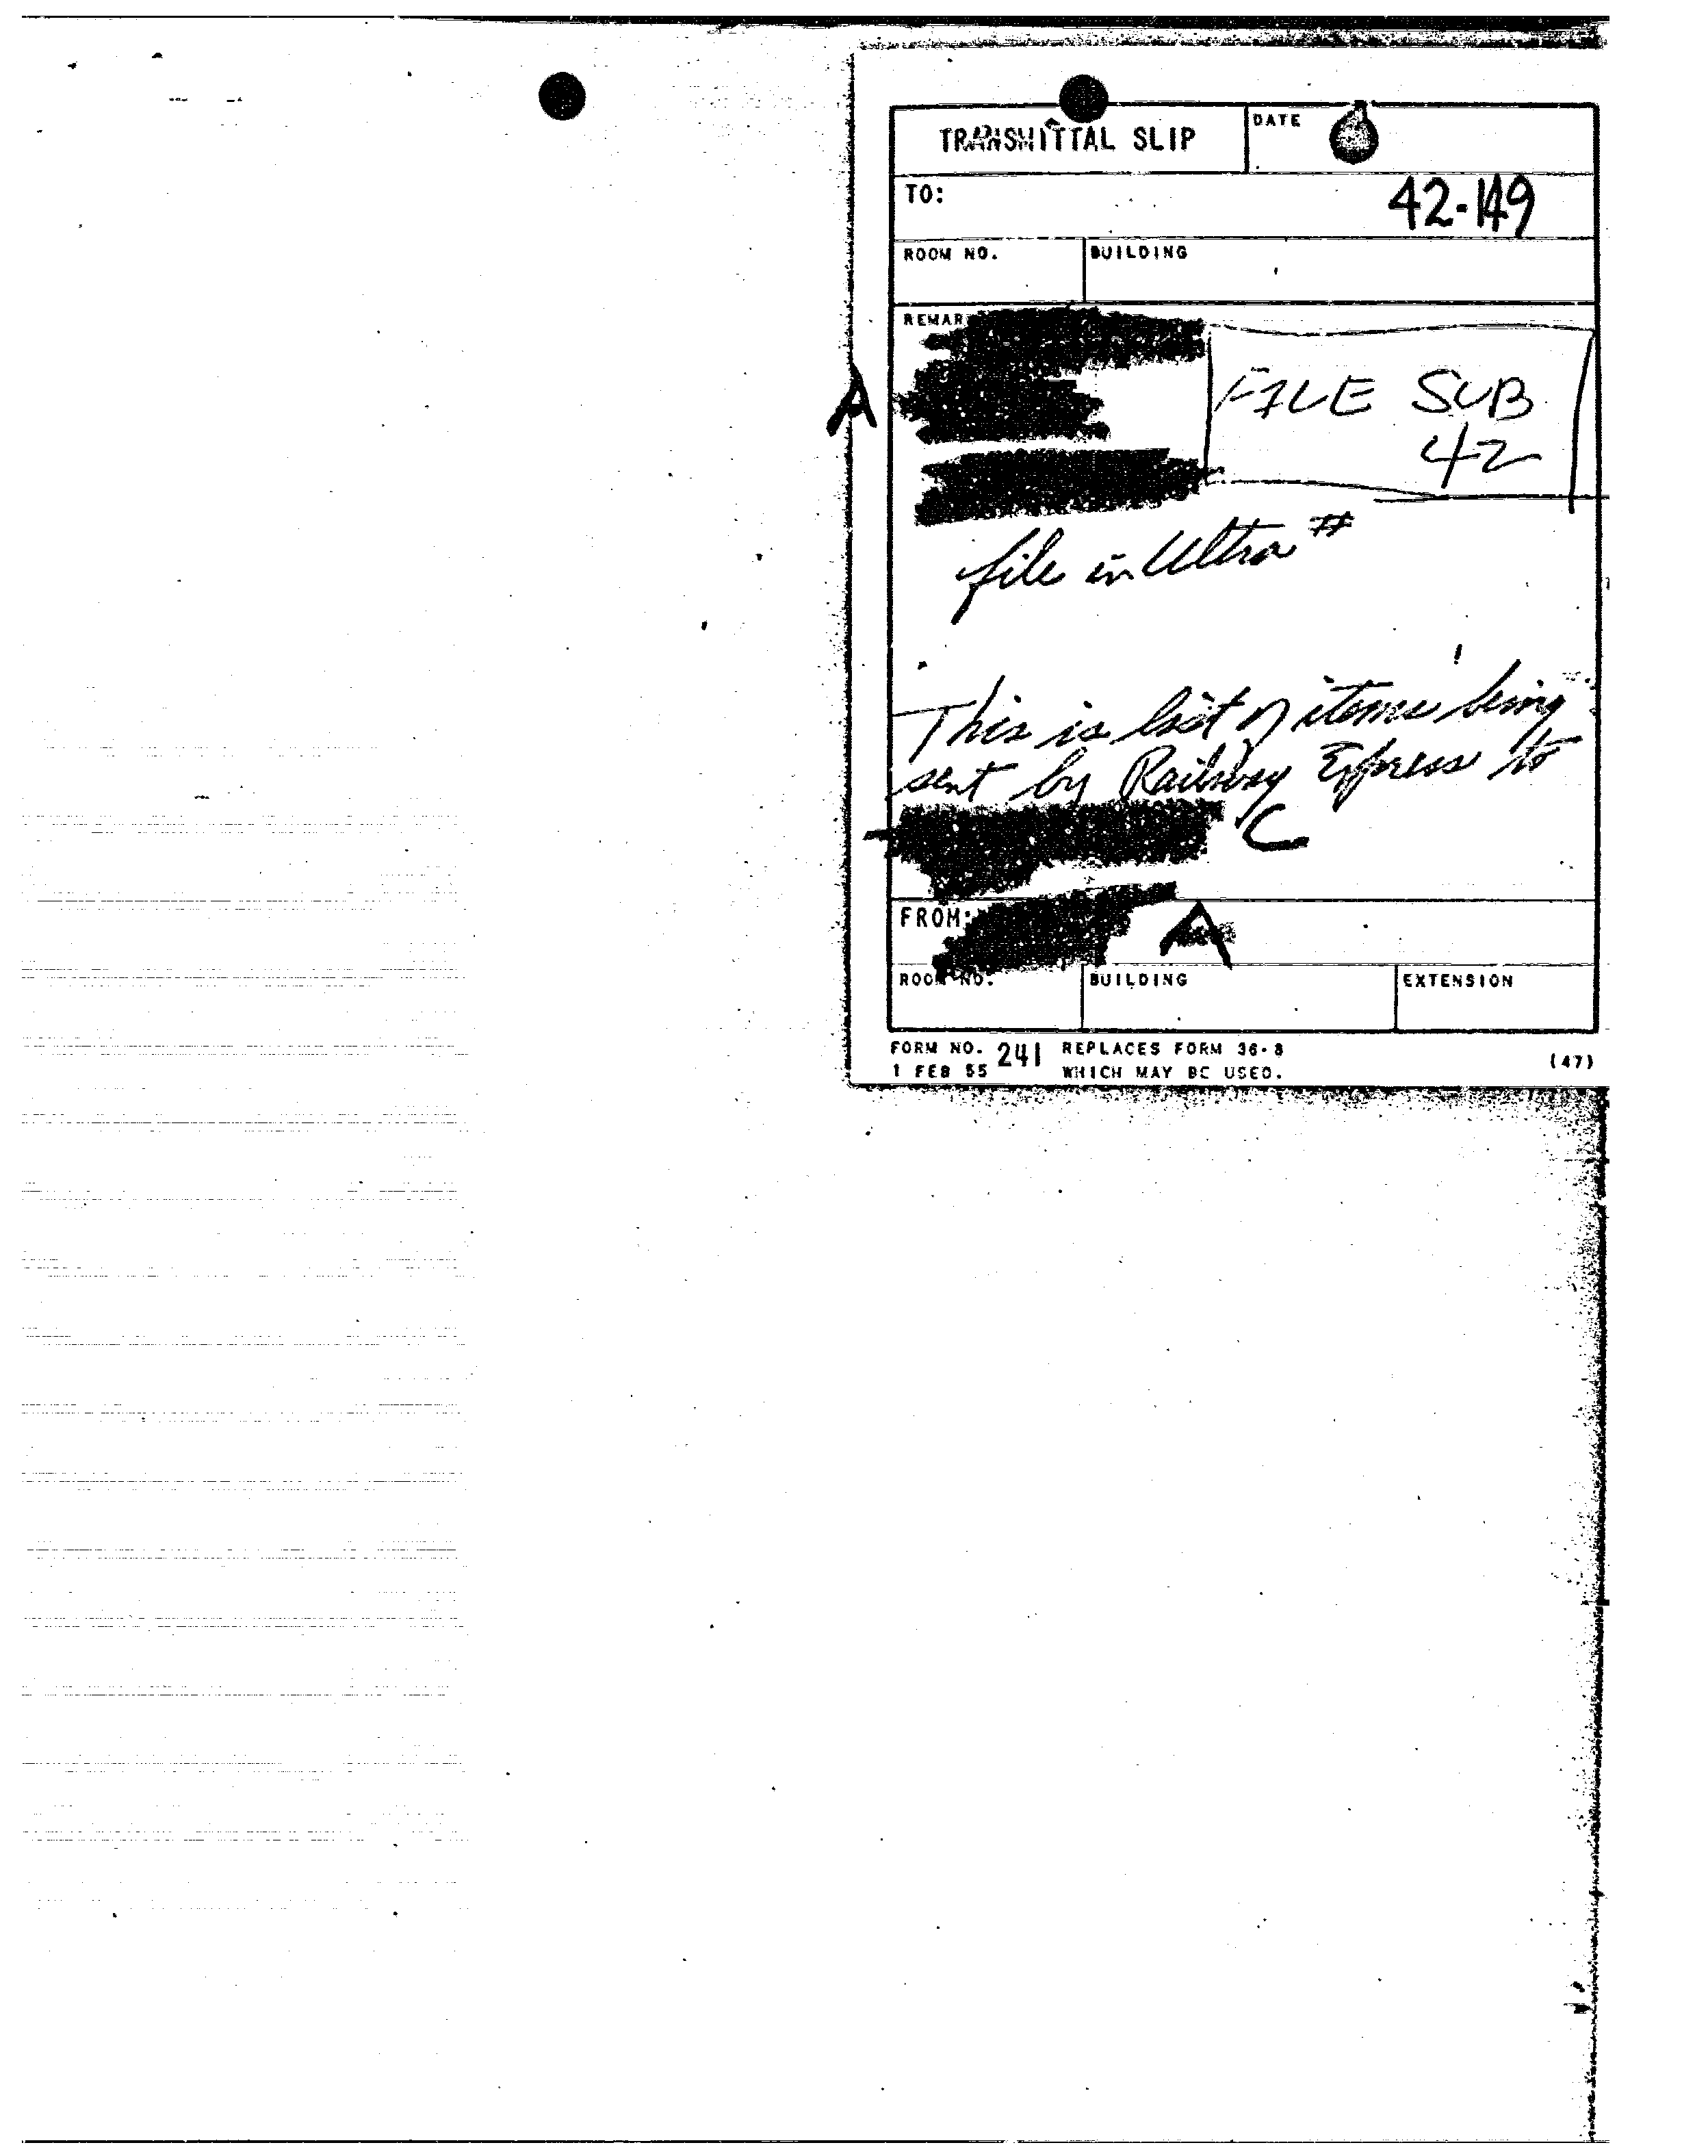 TRANSMITTAL SLIP
DATE
TO:
42-149
ROOM NO.
BUILDING
REMAR
A
FILE SUB
42
file in Ultra #
This is list of items being
sent by Railway Express to
C
FROM:
A
ROOM NO.
BUILDING
EXTENSION
FORM NO. 241 REPLACES FORM 36-8
1 FEB 55 WHICH MAY BE USED.
(47)